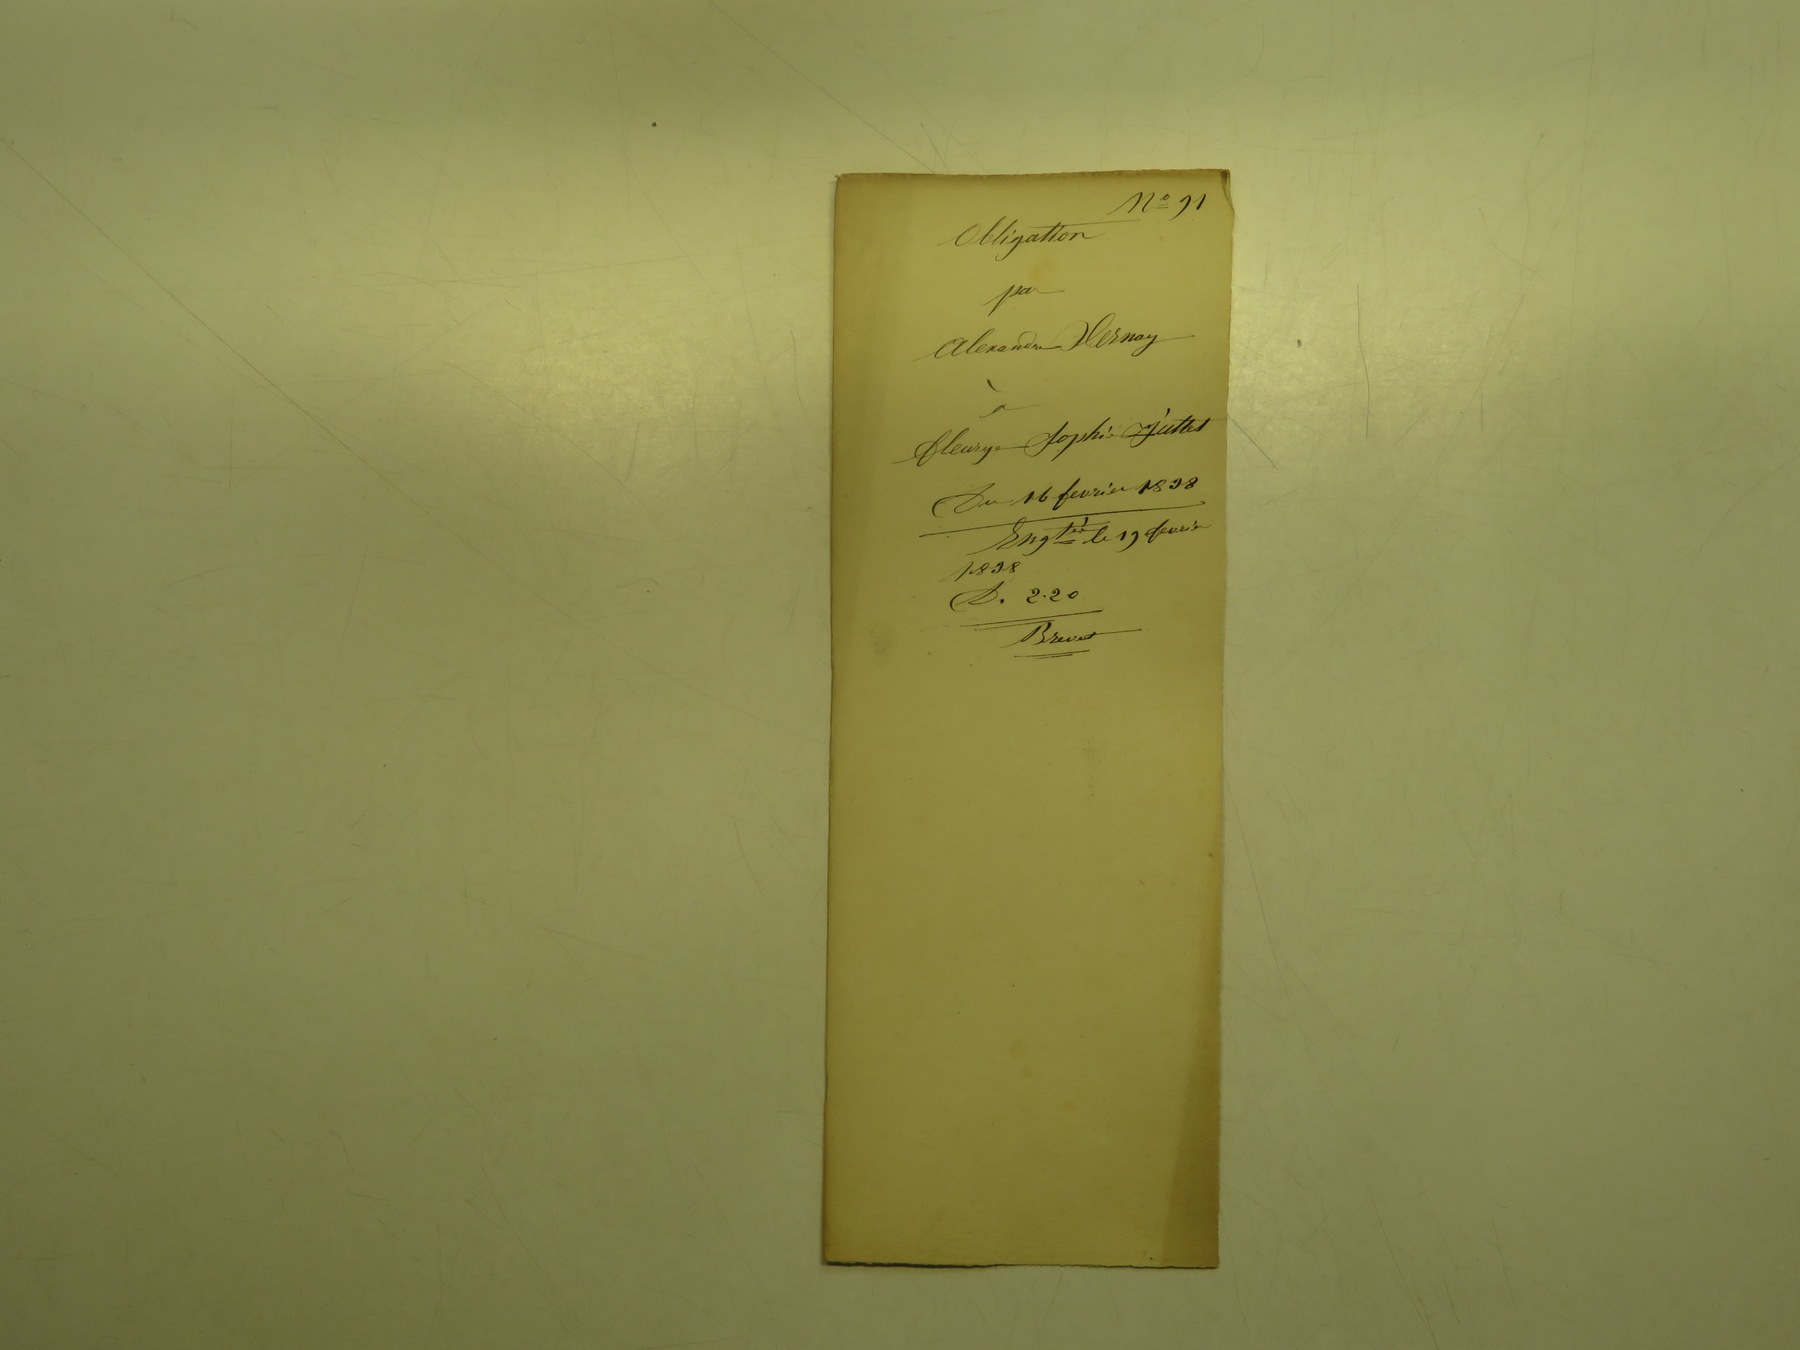 No 91
Obligation
par
Alexandre Vernay
à
Fleurye Sophie Juttet
Du 16 fevrier 1898
Engtré le 19 fevrier
1898
D. 2.20
Brevet